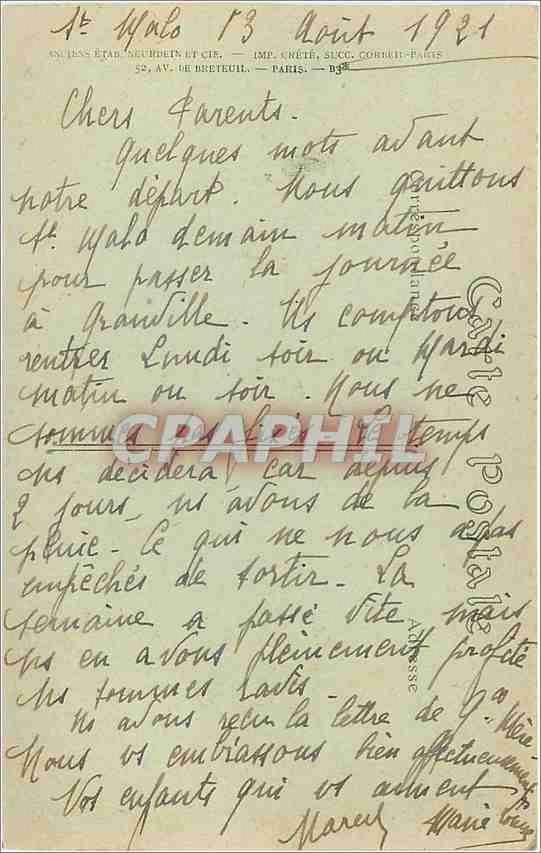 St Malo 13 Août 1921
ANCIENS ÉTAB. NEURDEIN ET CIE. — IMP. CRÉTÉ, SUCC. CORBEIL-PARIS
52, AV. DE BRETEUIL. — PARIS. — B3
Chers Parents.
Quelques mots avant
notre départ. Nous quittons
St Malo demain matin
pour passer la journée
à Granville. Ns comptons
rentrer Lundi soir ou Mardi
matin ou soir. Nous ne
sommes pas fixés. Le temps
ns décidera car depuis
2 jours, ns avons de la
pluie. Ce qui ne nous a pas
empêchés de sortir. La
semaine a passé vite mais
ns en avons pleinement profité
Ns sommes ravis.
Ns avons reçu la lettre de Gd Mère.
Nous vs embrassons bien affectueusement
Vos enfants qui vs aiment
Marcel Marie
Carte postale
Correspondance
Adresse
CPAPHIL